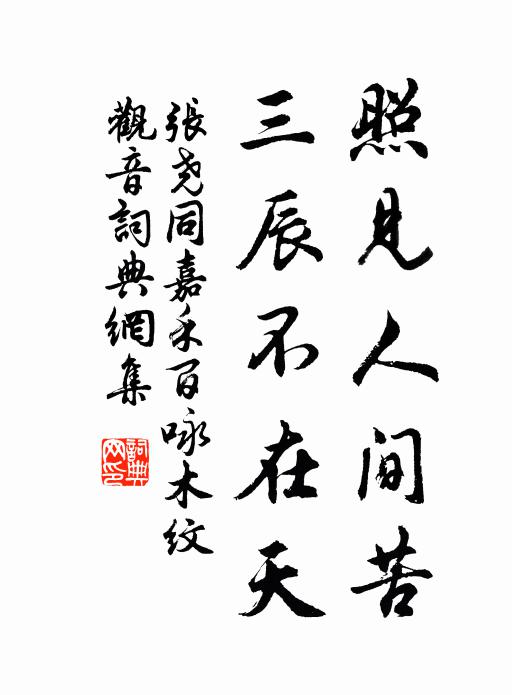 照見人间苦
三辰不在天
張尧同嘉禾百咏木纹
觀音詞典網集
詞典网印